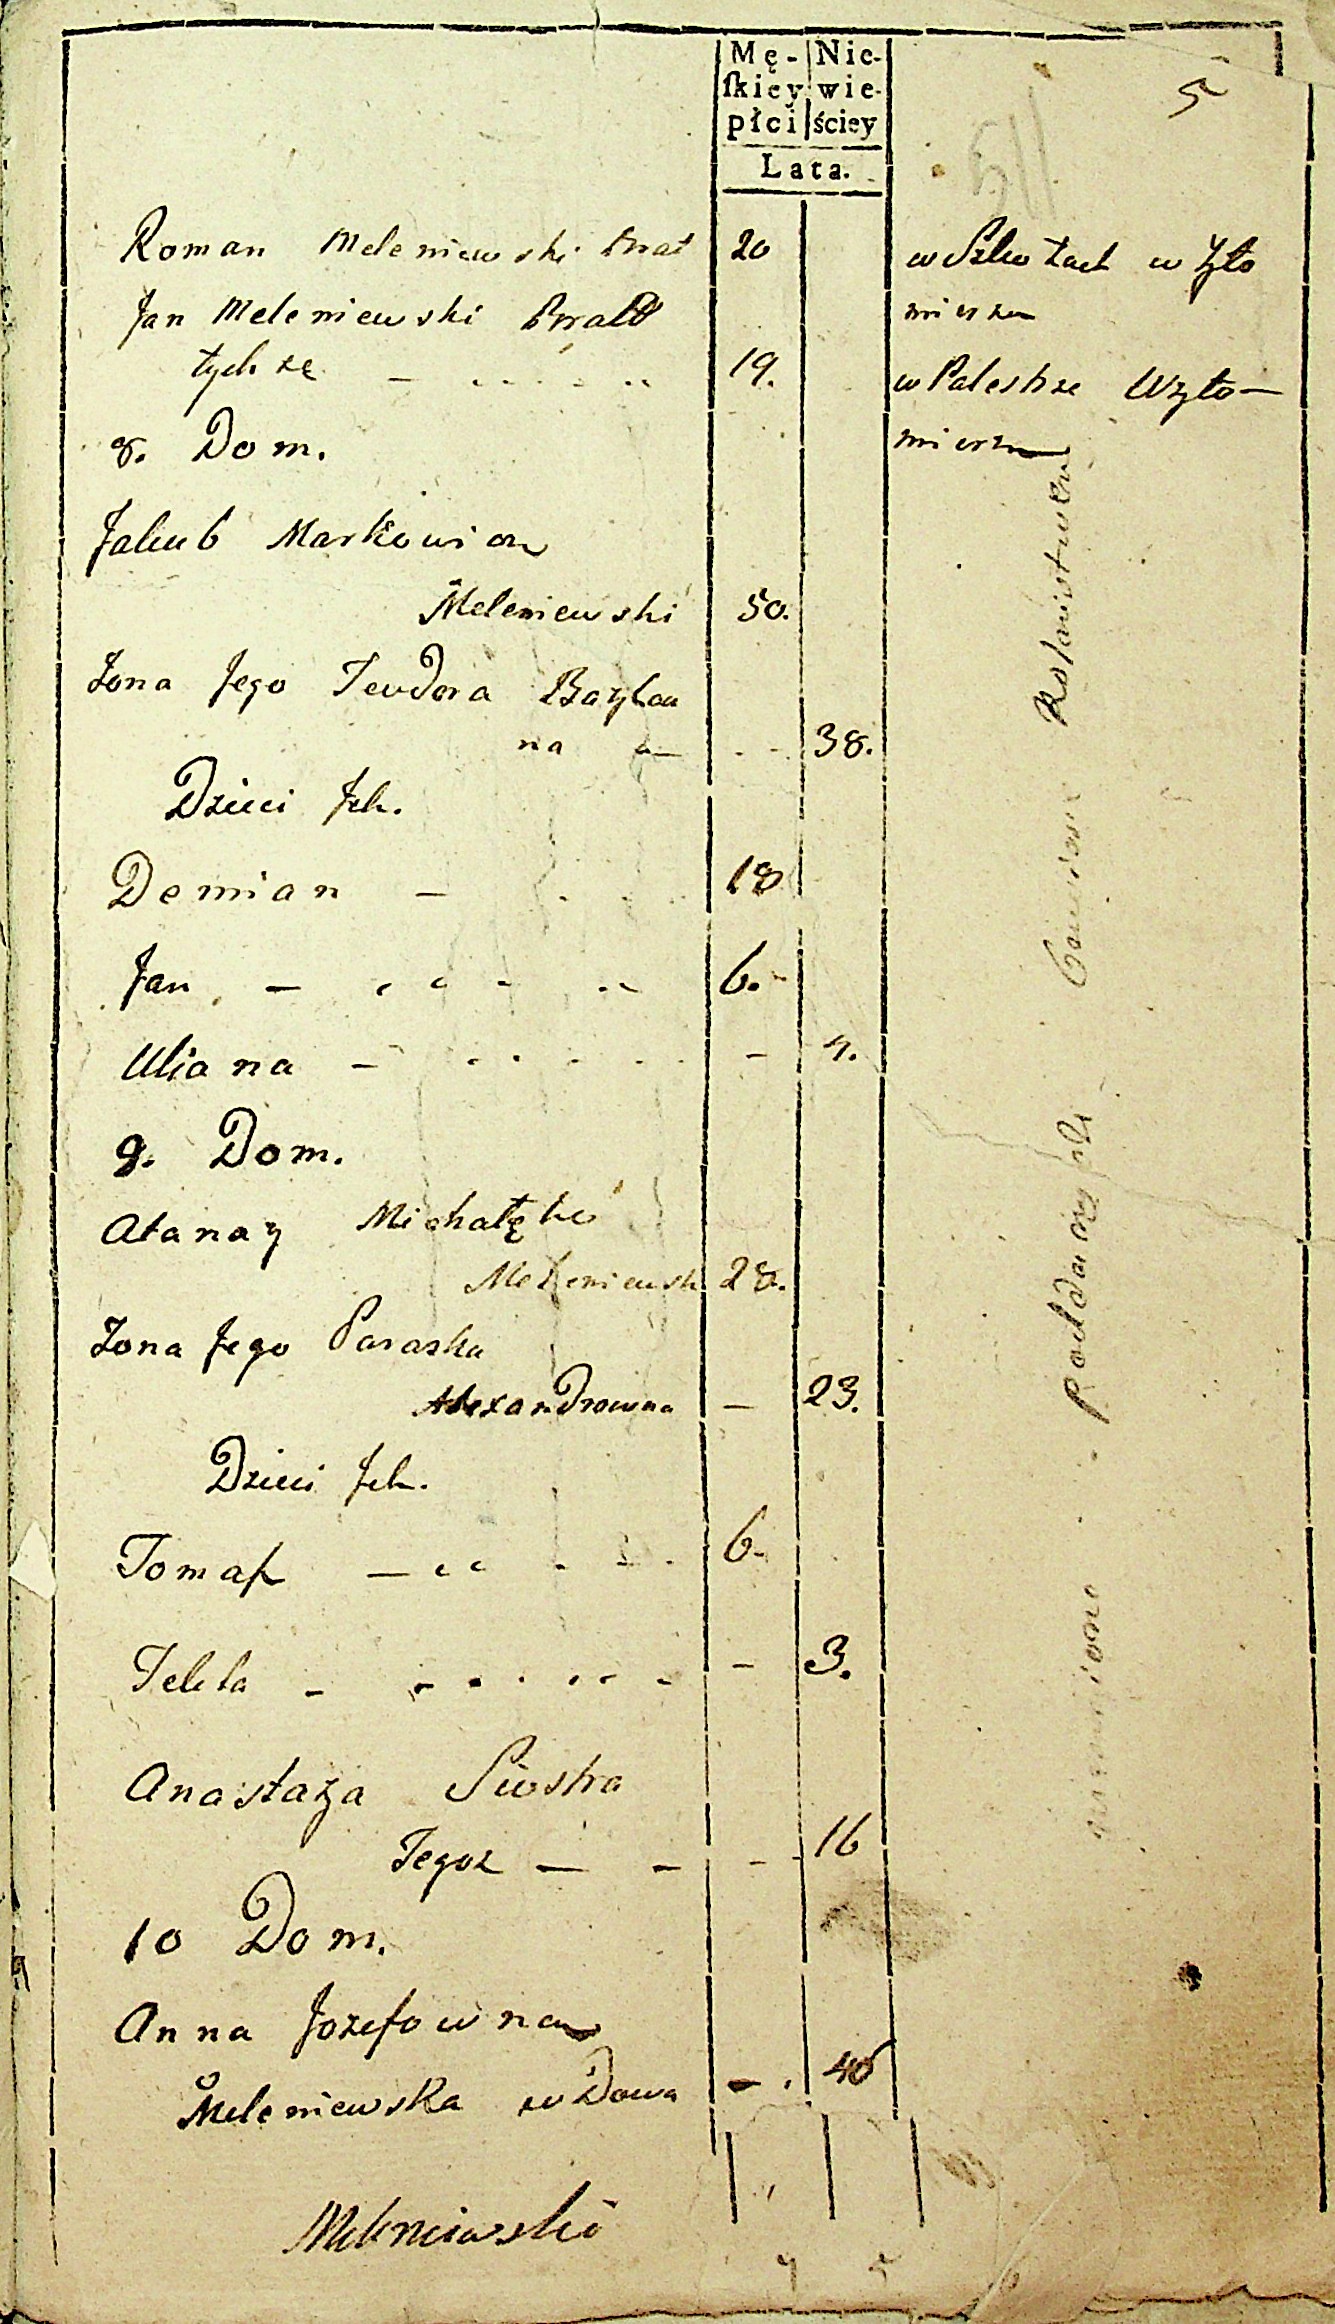 Mę- Nie-
ſkiey wie-
płci ściey
Lata.
5
Roman Meleniewski Brat 20 w Szkołach w Żyto
mierzu
Jan Meleniewski Bratt
tychże 19. w Palestrze W Żyto—
mierzu
8. Dom.
Jakub Markowicz
Meleniewski 50.
Żona Jego Teodora
na 38.
Dzieci Jch.
Demian — 18
Jan — 6.
Uliana — 4.
9. Dom.
Atanazy
Meleniewsk 28.
Żona Jego Paraska
Alexandrowna — 23.
Dzieci Jch.
Tomaſz — 6.
Tekla — 3.
Anastazya Siostra
Tegoż — 16
10 Dom.
Anna Jozefowna
Meleniewska wdowa — 40
Meleniewski